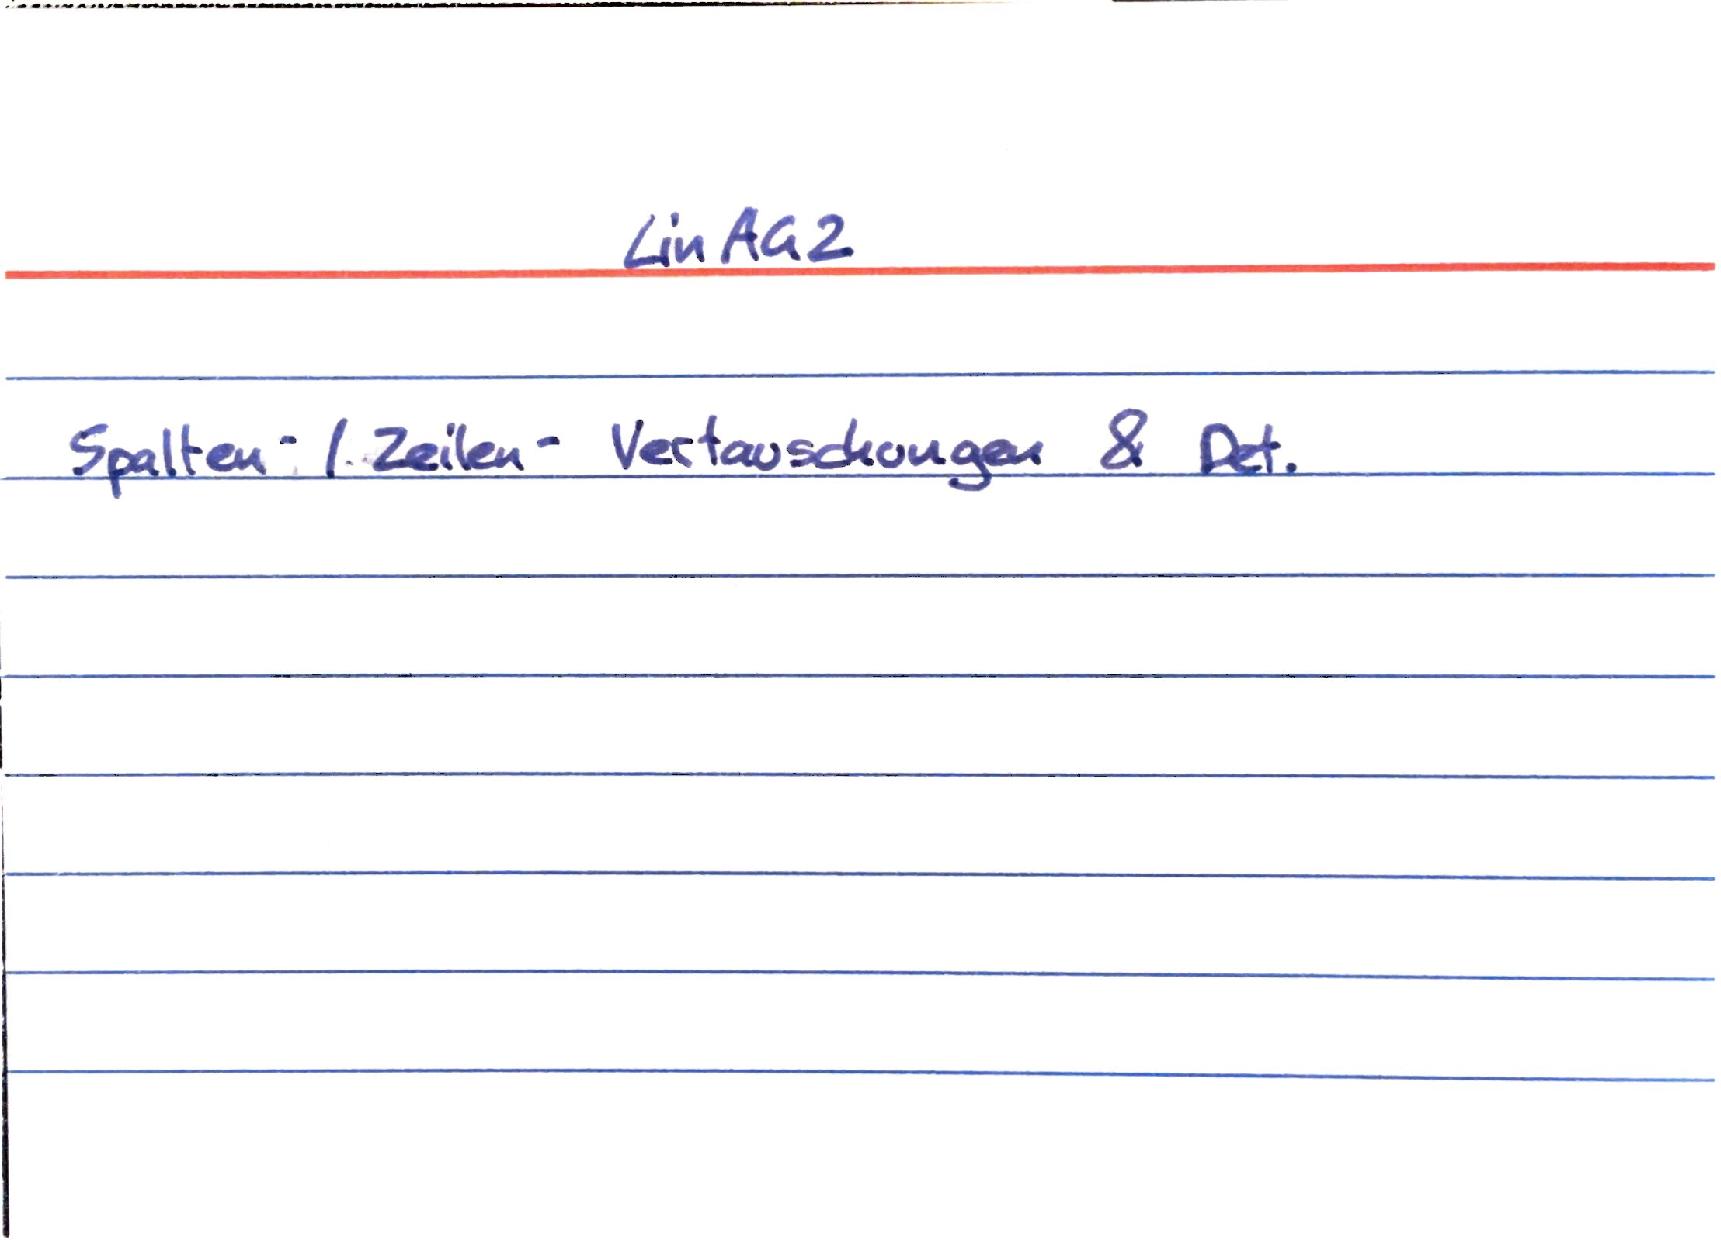 LinAG2
Spalten-/Zeilen-Vertauschungen & Det.